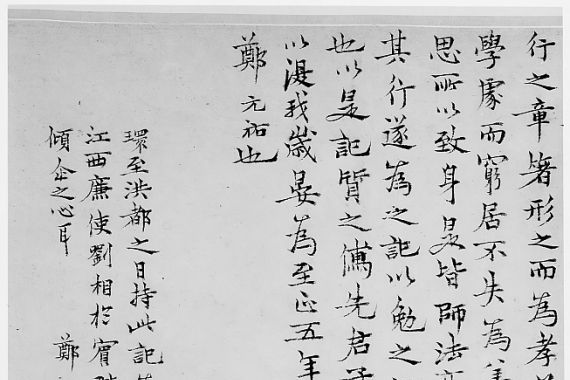 行之章箸形之而為孝
學豪而窮居不失為
思所以致身是皆師法
其行遂為之記以勉之
也以是記質之儒先君子
以漫我歲晏為至正五年
鄭元祐也
環至洪都之日持此記
江西廉使劉相於賓
傾企之心耳
鄭